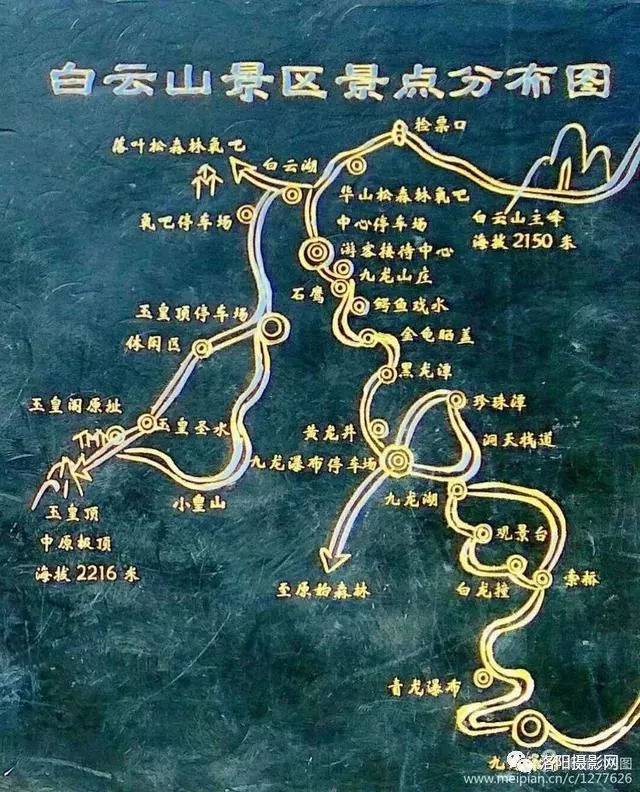 白云山景区景点分布图
检票口
落叶松森林氧吧
白云湖
华山松森林氧吧
氧吧停车场
中心停车场
白云山主峰
海拔2150米
游客接待中心
九龙山庄
石鹰
鳄鱼戏水
玉皇顶停车场
金龟晒盖
休闲区
黑龙潭
玉皇阁原址
珍珠潭
玉皇圣水
黄龙井
洞天栈道
九龙瀑布停车场
小皇山
九龙湖
玉皇顶
中原极顶
海拔2216米
观景台
至原始森林
白龙撞
索桥
青龙瀑布
洛阳摄影网
www.meipian.cn/c/1277626